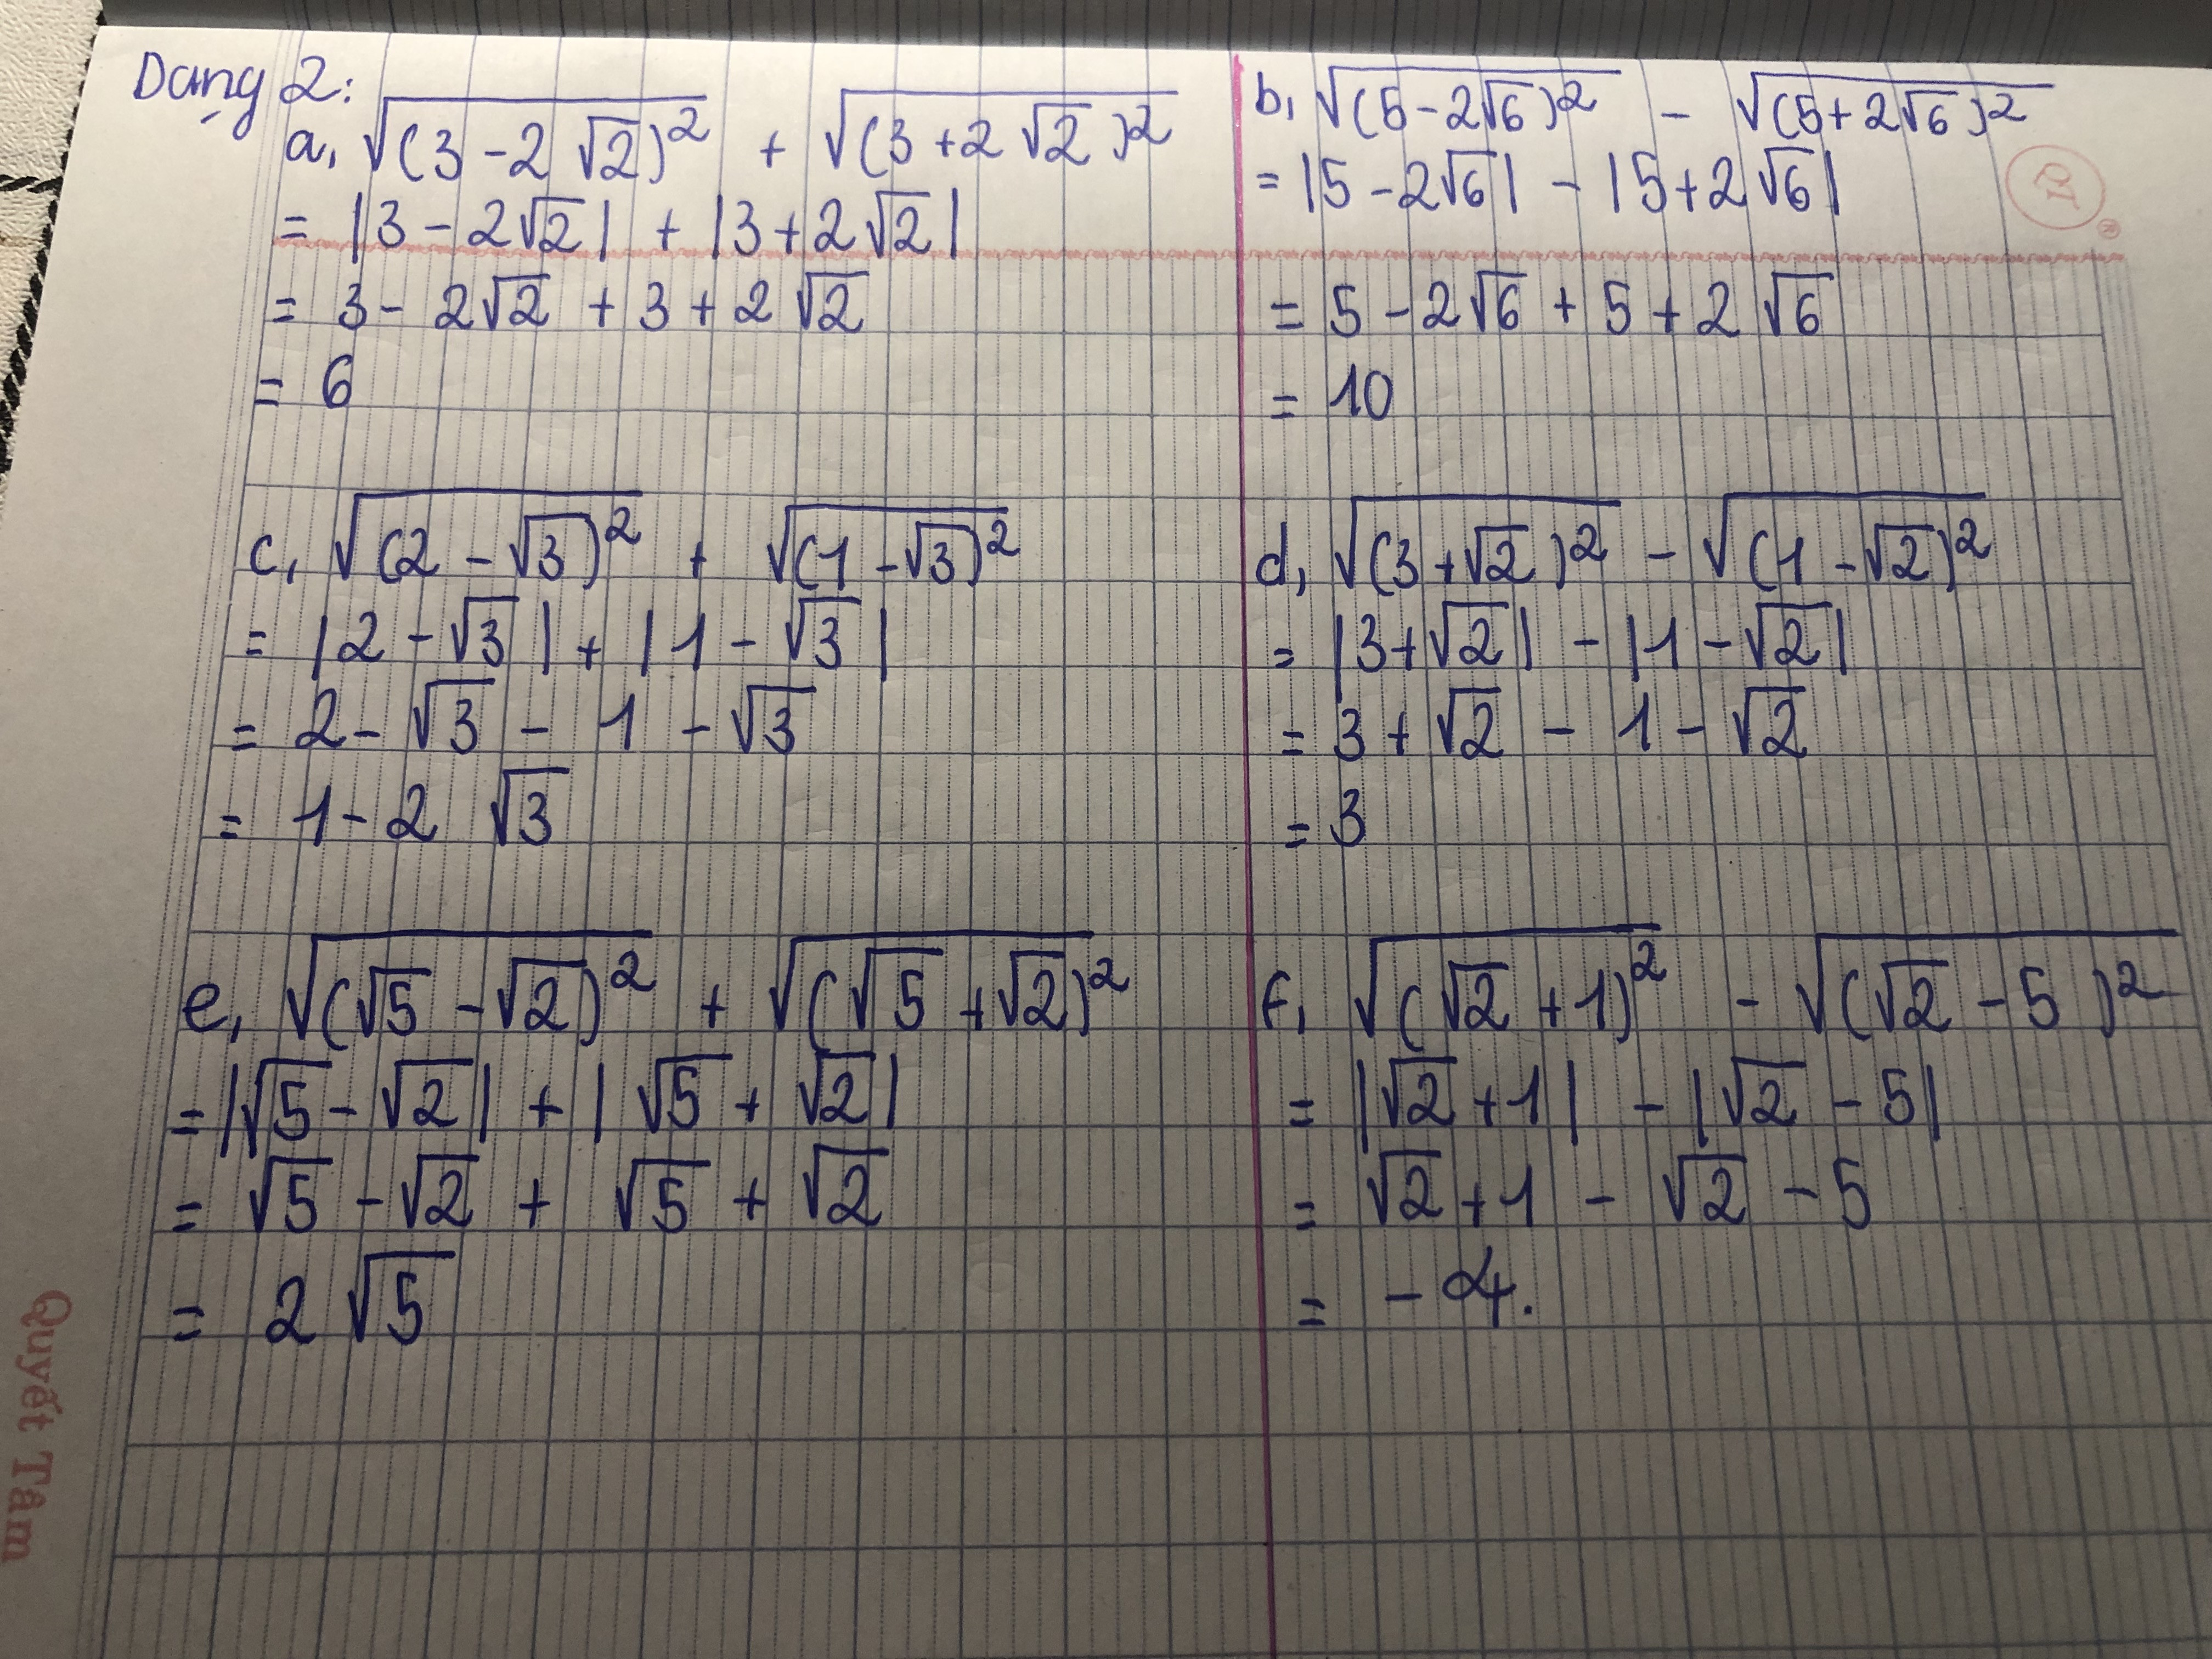 Dạng 2:
a, √(3 - 2√2)² + √(3 + 2√2)²
= |3 - 2√2| + |3 + 2√2|
= 3 - 2√2 + 3 + 2√2
= 6
b, √(5 - 2√6)² - √(5 + 2√6)²
= |5 - 2√6| - |5 + 2√6|
= 5 - 2√6 + 5 + 2√6
= 10
c, √(2 - √3)² + √(1 - √3)²
= |2 - √3| + |1 - √3|
= 2 - √3 - 1 - √3
= 1 - 2√3
d, √(3 + √2)² - √(1 - √2)²
= |3 + √2| - |1 - √2|
= 3 + √2 - 1 - √2
= 3
e, √(√5 - √2)² + √(√5 + √2)²
= |√5 - √2| + |√5 + √2|
= √5 - √2 + √5 + √2
= 2√5
f, √(√2 + 1)² - √(√2 - 5)²
= |√2 + 1| - |√2 - 5|
= √2 + 1 - √2 - 5
= - 4.
Quyết Tâm